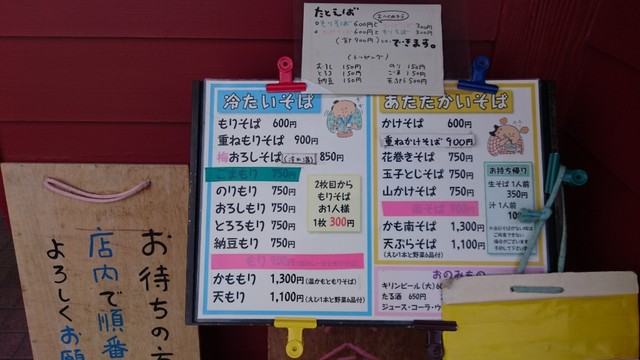 たとえば
もりそば 600円と
300円
600円と もりそば 300円
(計900円)
できます。
(トッピング)
おろし 150円 のり 150円
とろろ 150円 ごま 150円
納豆 150円 天ぷら 500円
冷たいそば
もりそば 600円
重ねもりそば 900円
梅おろしそば 850円
ごまもり 750円
のりもり 750円
おろしもり 750円
とろろもり 750円
納豆もり 750円
かももり 1,300円 (温かもともりそば)
天もり 1,100円 (えび1本と野菜6品付)
2枚目から
もりそば
お1人様
1枚 300円
あたたかいそば
かけそば 600円
重ねかけそば 900円
花巻きそば 750円
玉子とじそば 750円
山かけそば 750円
かも南そば 1,300円
天ぷらそば 1,100円
(えび1本と野菜6品付)
お持ち帰り
生そば1人前
350円
汁 1人前
おのみもの
キリンビール (大)
たる酒 650円
ジュース・コーラ・ウ
お待ちの方
店内で順番
よろしくお願